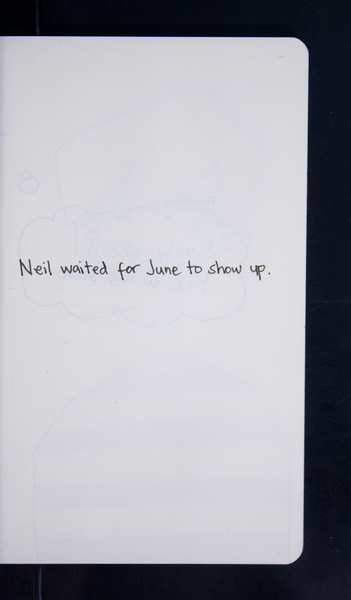 Neil waited for June to show up.